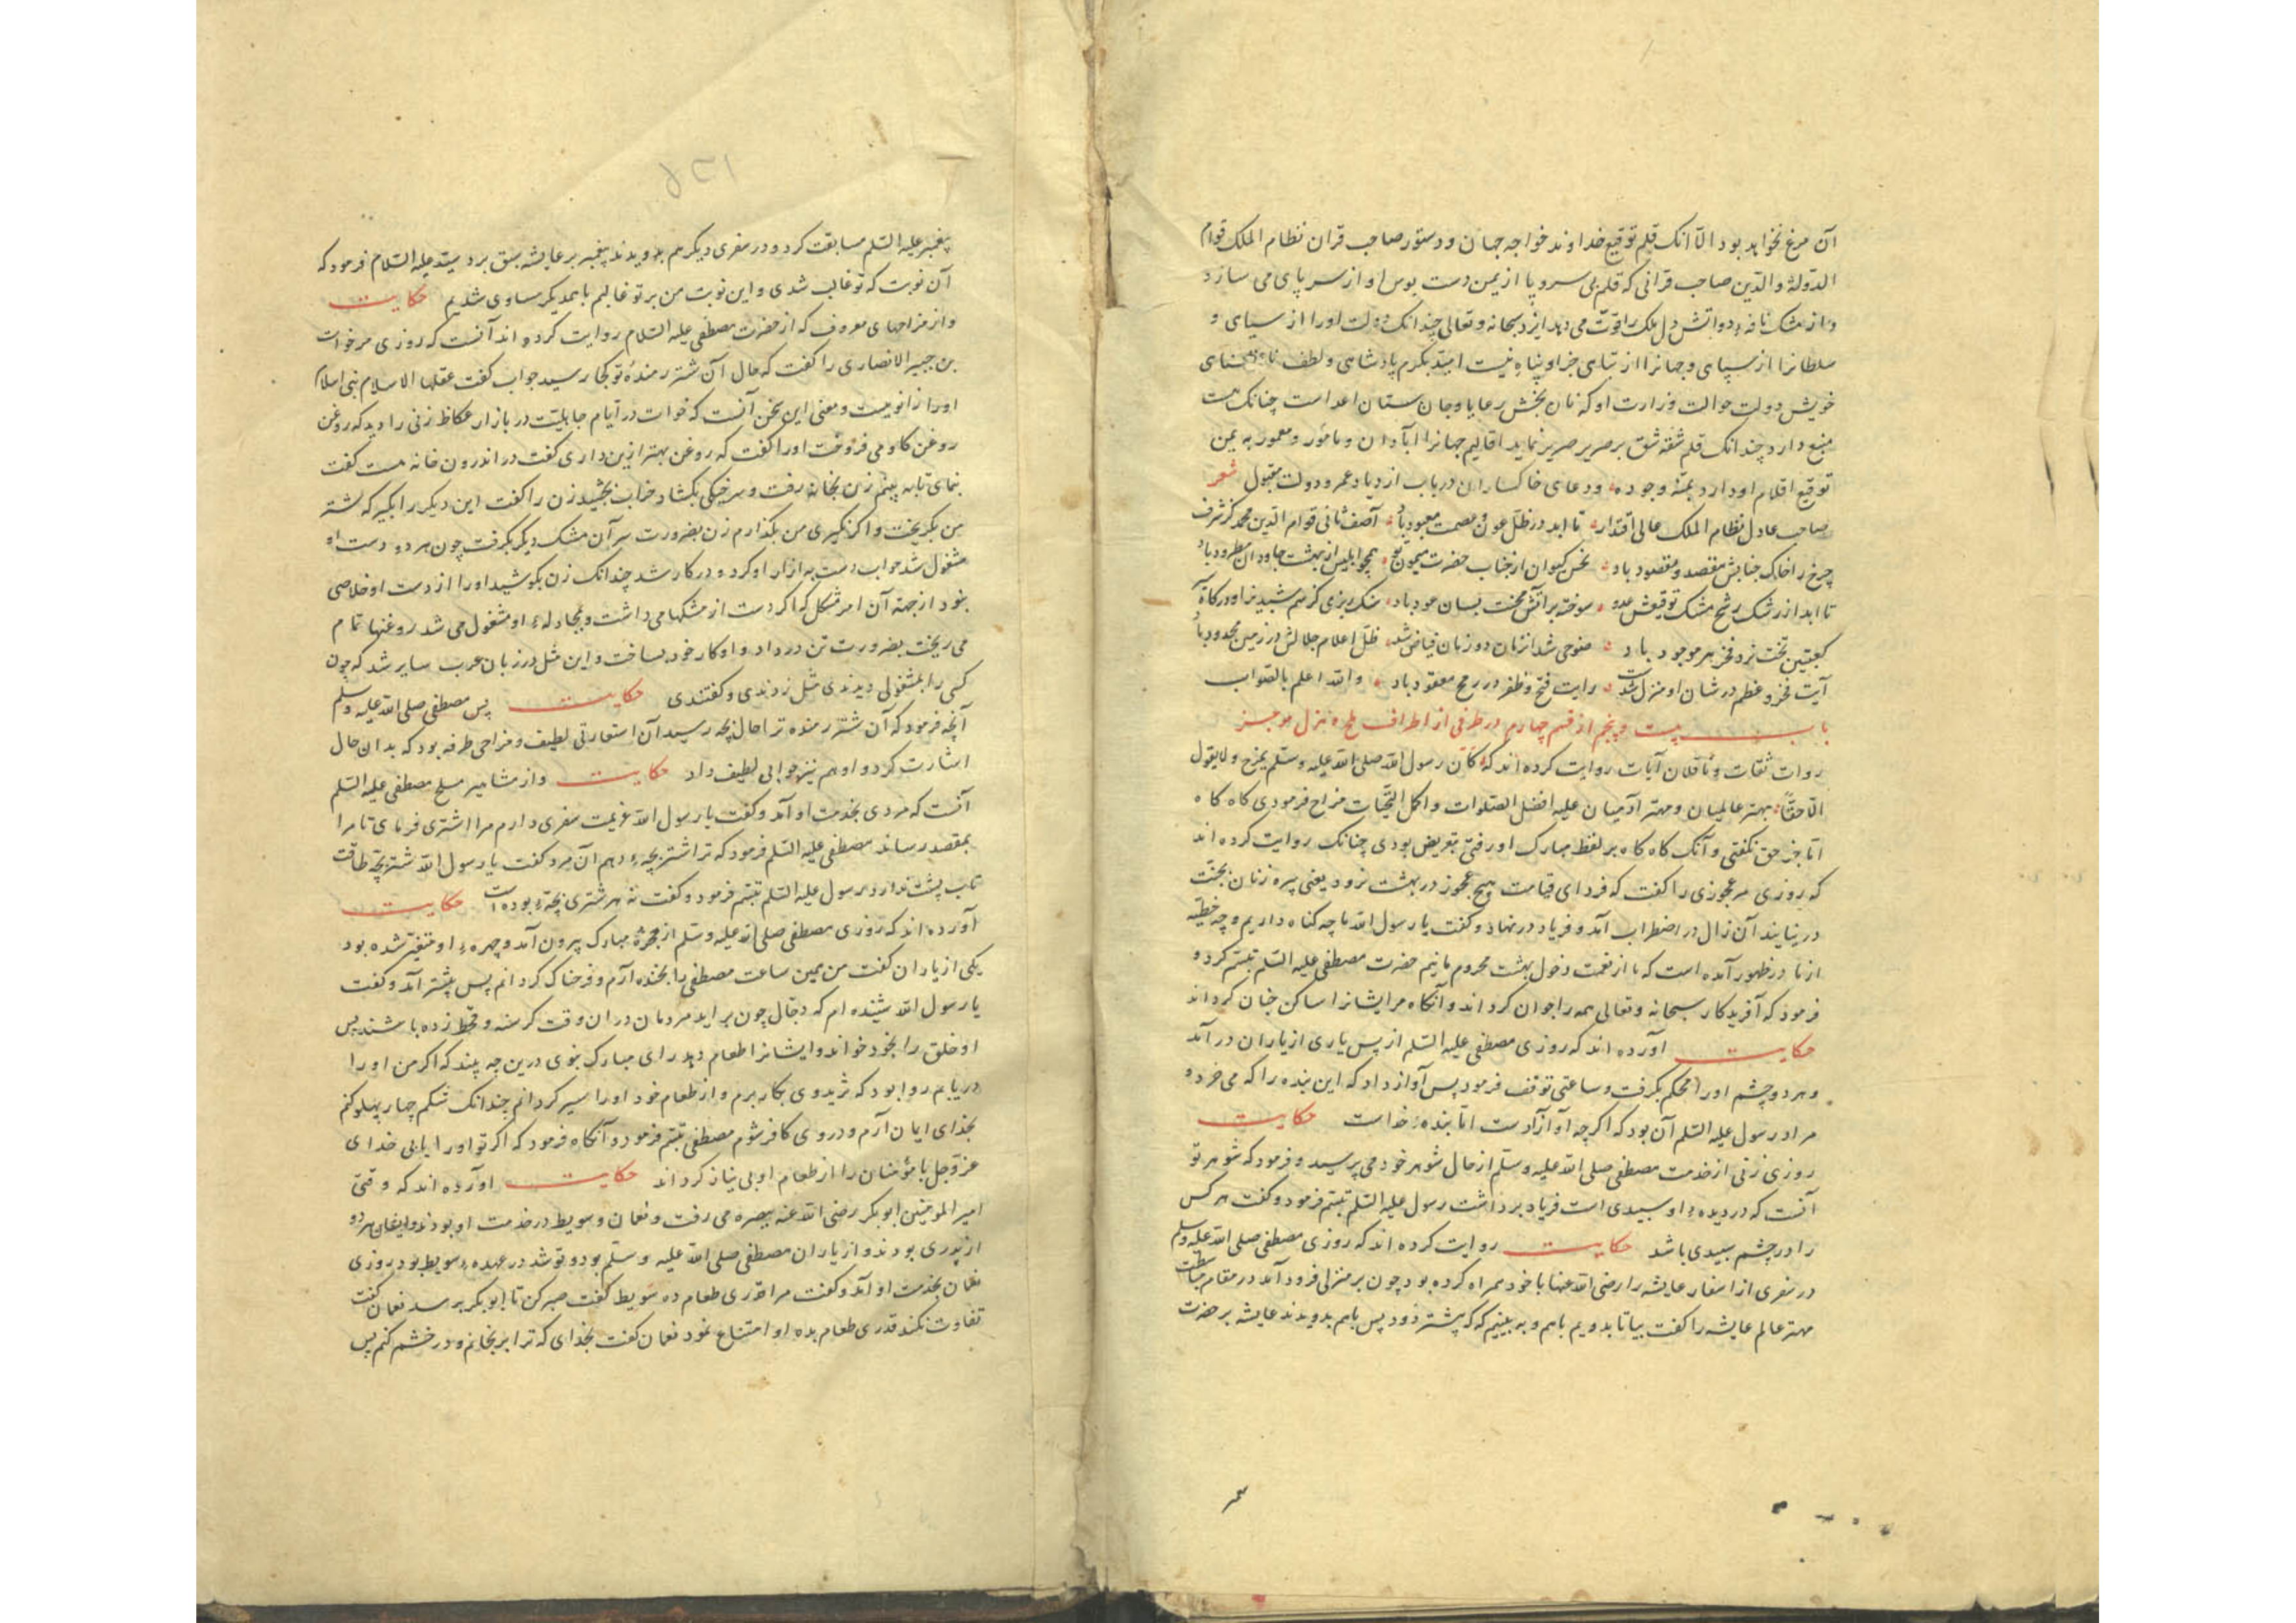 آن مرغ نخواهد بود الّا انک قلم توقیع خداوند خواجه جهان و دستور صاحب قران نظام الملک قوام
الدّولة والدّین صاحب قرانی که قلم بی سر و پا از یمن دست بوس او از سر پای می سازد
و از مشک نافهٔ دواتش دل ملک را قوّت می دهد ایزد سبحانه و تعالی چندانک دولت اورا از سپاهی و
سلطانرا از سپاهی و جهانرا از تباهی جز او پناه نیست امید بکرم پادشاهی و لطف
خویش دولت حوالت وزارت او که نان بخش رعایا و جان ستان اعداست چنانک هست
منبع دارد چندانک قلم شقه شق بر حریر صریر نماید اقالیم جهانرا آبادان و مامور و معمور به یمن
توقیع اقلام او دارد بمنّه وجوده ودعای خاکساران در باب ازدیاد عمر و دولت مقبول شعر
صاحب عادل نظام الملک عالی اقتدار تا ابد در ظلّ عون و عصمت معبود باد آصف ثانی قوام الدین محمد کز شرف
چرخ را خاک جنابش مقصد و مقصود باد نحس کیوان از جناب حضرت میمون تو همچو ابلیس از بهشت جاودان مطرود باد
تا ابد از رشک رشح مشک توقیعش عدو سوخته بر آتش محنت بسان عود باد
کعبتین تخت نرد فخر هر موجود باد ظلّ اعلام جلالش در زمین محدود باد
آیت فخر و عظم در شان او منزل شدست رایت فتح و ظفر در رمح معقود باد والله اعلم بالصّواب
باب بیست و پنجم از قسم چهارم در طرفی از اطراف طره هزل موجز
روات ثقات و ناقلان آیات روایت کرده اند که کان رسول الله صلی الله علیه وسلم یمزح ولا یقول
الّا حقّاً مهتر عالمیان و بهتر آدمیان علیه افضل الصّلوات و اکمل التّحیّات مزاح فرمودی کاه کاه
امّا جز حق نکفتی و آنک کاه کاه بر لفظ مبارک او رفتی بتعریض بودی چنانک روایت کرده اند
که روزی مر عجوزی را کفت که فردای قیامت هیچ عجوز در بهشت نرود یعنی پیره زنان بجنّت
در نیایند آن زال در اضطراب آمد و فریاد در نهاد و کفت یا رسول الله ما چه کناه داریم و چه خطیّه
از ما در ظهور آمده است که ما از نعمت دخول بهشت محروم مانیم حضرت مصطفی علیه السّلم تبسّم کرد و
فرمود که آفریدکار سبحانه و تعالی همه را جوان کرداند و آنکاه مر ایشانرا ساکن جنان کرداند
حکایت آورده اند که روزی مصطفی علیه السّلم از پس یاری از یاران در آمد
و هر دو چشم اورا محکم بکرفت و ساعتی توقف فرمود پس آواز داد که این بنده را که می خرد و
مراد رسول علیه السّلم آن بود که اکرچه او آزادست امّا بندهٔ خداست حکایت
روزی زنی از خدمت مصطفی صلی الله علیه وسلّم از حال شوهر خود می پرسید و فرمود که شوهر تو
آنست که در دیدهٔ او سپیدی است فریاد برداشت رسول علیه السّلم تبسّم فرمود و کفت هر کس
را در چشم سپیدی باشد حکایت روایت کرده اند که روزی مصطفی صلی الله علیه وسلم
در سفری از اسفار عایشه را رضی الله عنها با خود همراه کرده بود چون بر منزلی فرود آمد در مقام مباسطت
مهتر عالم عایشه را کفت بیا تا بدویم باهم و به بینیم که که پیشتر دود پس باهم بدویدند عایشه بر حضرت
پیغمبر علیه السّلم مسابقت کرد و در سفری دیکر هم بدویدند پیغمبر بر عایشه سبق برد سیّد علیه السّلام فرمود که
آن نوبت که تو غالب شدی و این نوبت من بر تو غالبم با همدیکر مساوی شدیم حکایت
و از مزاحهای معروف که از حضرت مصطفی علیه السّلام روایت کرده اند آنست که روزی مر خوات
بن جبیر الانصاری را کفت که حال آن شتر رمندهٔ تو بکجا رسید جواب کفت عقلها الاسلام بنی اسلام
اورا زانو ببست و معنی این سخن آنست که خوات در ایّام جاهلیّت در بازار عکاظ زنی را دید که روغن
روغن کاو می فروخت اورا کفت که روغن بهتر ازین داری کفت در اندرون خانه هست کفت
بنمای تا به بینم زن بخانه رفت و سر خیکی بکشاد خواب بچشید زن را کفت این دیکر را بکیر که شتر
من بکریخت و اکر نکیری من بکذارم زن بضرورت سر آن مشک دیکر بکرفت چون هر دو دست او
مشغول شد خواب دست به ازار او کرد و در کار شد چندانک زن بکوشید اورا از دست او خلاصی
نبود از جهة آن امر مشکل که اکر دست از مشکها می داشت و بمجادلهٔ او مشغول می شد روغنها تمام
می ریخت بضرورت تن در داد و او کار خود بساخت و این مثل در زبان عرب سایر شد که چون
کسی را بمشغولی دیدندی مثل زدندی و کفتندی حکایت پس مصطفی صلی الله علیه وسلم
آنچه فرمود که آن شتر رمنده ترا حال بچه رسید آن استعارتی لطیف و مزاحی طرفه بود که بدان حال
اشارت کرد و او هم نیز جوابی لطیف داد حکایت و از مشاهیر ملح مصطفی علیه السّلم
آنست که مردی بخدمت او آمد و کفت یا رسول الله عزیمت سفری دارم مرا اشتری فرمای تا مرا
بمقصد رساند مصطفی علیه السّلم فرمود که ترا شتر بچهٔ دهم آن مرد کفت یا رسول الله شتر بچه طاقت
تاب پشت ندارد رسول علیه السّلم تبسّم فرمود و کفت نه هر شتری بچهٔ بوده است حکایت
آورده اند که روزی مصطفی صلی الله علیه وسلّم از حجرهٔ مبارک بیرون آمد و چهرهٔ او متغیّر شده بود
یکی از یاران کفت من همین ساعت مصطفی را بخنده آرم و فرحناک کردانم پس پیشتر آمد و کفت
یا رسول الله شنیده ام که دجّال چون بر آید مردمان در ان وقت کرسنه و قحط زده باشند پس
او خلق را بخود خواند و ایشانرا طعام دهد رای مبارک نبوی درین چه بیند که اکر من اورا
دریابم روا بود که ثرید وی بکار برم و از طعام خود اورا سیر کردانم چندانک شکم چهار پهلو کنم
بخدای ایمان آرم و در وی کافر شوم مصطفی تبسّم فرمود و آنکاه فرمود که اکر تو اورا یابی خدای
عزّوجل با مؤمنان را از طعام او بی نیاز کرداند حکایت آورده اند که وقتی
امیر المومنین ابوبکر رضی الله عنه ببصره می رفت و نعمان و سویط در خدمت او بودند و ایشان هر دو
از بدری بودند و از یاران مصطفی صلی الله علیه وسلّم بود و توشه در عهدهٔ سویط بود روزی
نعمان بخدمت او آمد و کفت مرا قدری طعام ده سویط کفت صبر کن تا ابوبکر برسد نعمان کفت
تفاوت نکند قدری طعام بده او امتناع نمود نعمان کفت بخدای که ترا برنجانم و در خشم کنم پس